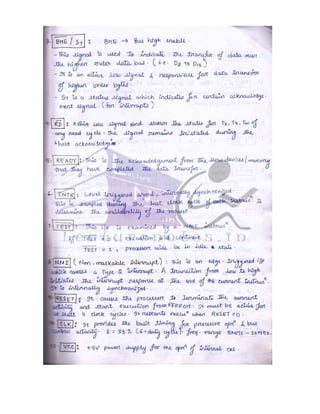 3. BHE / S7 : BHE → Bus high enable.
- This signal is used to indicate the transfer of data over
the higher order data bus. (i.e. D8 to D15)
- It is an active low signal & responsible for data transfer
of higher order bytes.
- S7 is a status signal which indicates for certain acknowledge-
ment signal. (for interrupts)
RD : Active low signal and shows the state for T2, T3, Tw of
any read cycle. The signal remains tristated during the
hold acknowledge.
5. READY : This is the acknowledgement from the slow devices / memory
that they have completed the data transfer.
6. INTR : Level triggered signal, internally synchronized.
This is sampled during the last clock cycle of each to
determine the availability of the request.
7. TEST : This i/p is examined by a instrus
if TEST = 0 ; execution continues
TEST = 1 , processor will be in idle state.
8. NMI ( Non-maskable interrupt) : This is an edge-triggered i/p
which causes a Type 2 interrupt. A transition from low to high
initiates the interrupt response at the end of the current instrus.
It is internally synchronized.
RESET : It causes the processor to terminate the current
activity and start execution from FFFF0H. It must be active for
at least 4 clock cycles. It restarts execun when RESET = 0.
CLK : It provides the basic timing for processor opn & bus
control activity. It = 33% duty cycle) freq. range
VCC : +5V power supply for the opn of internal ckt.